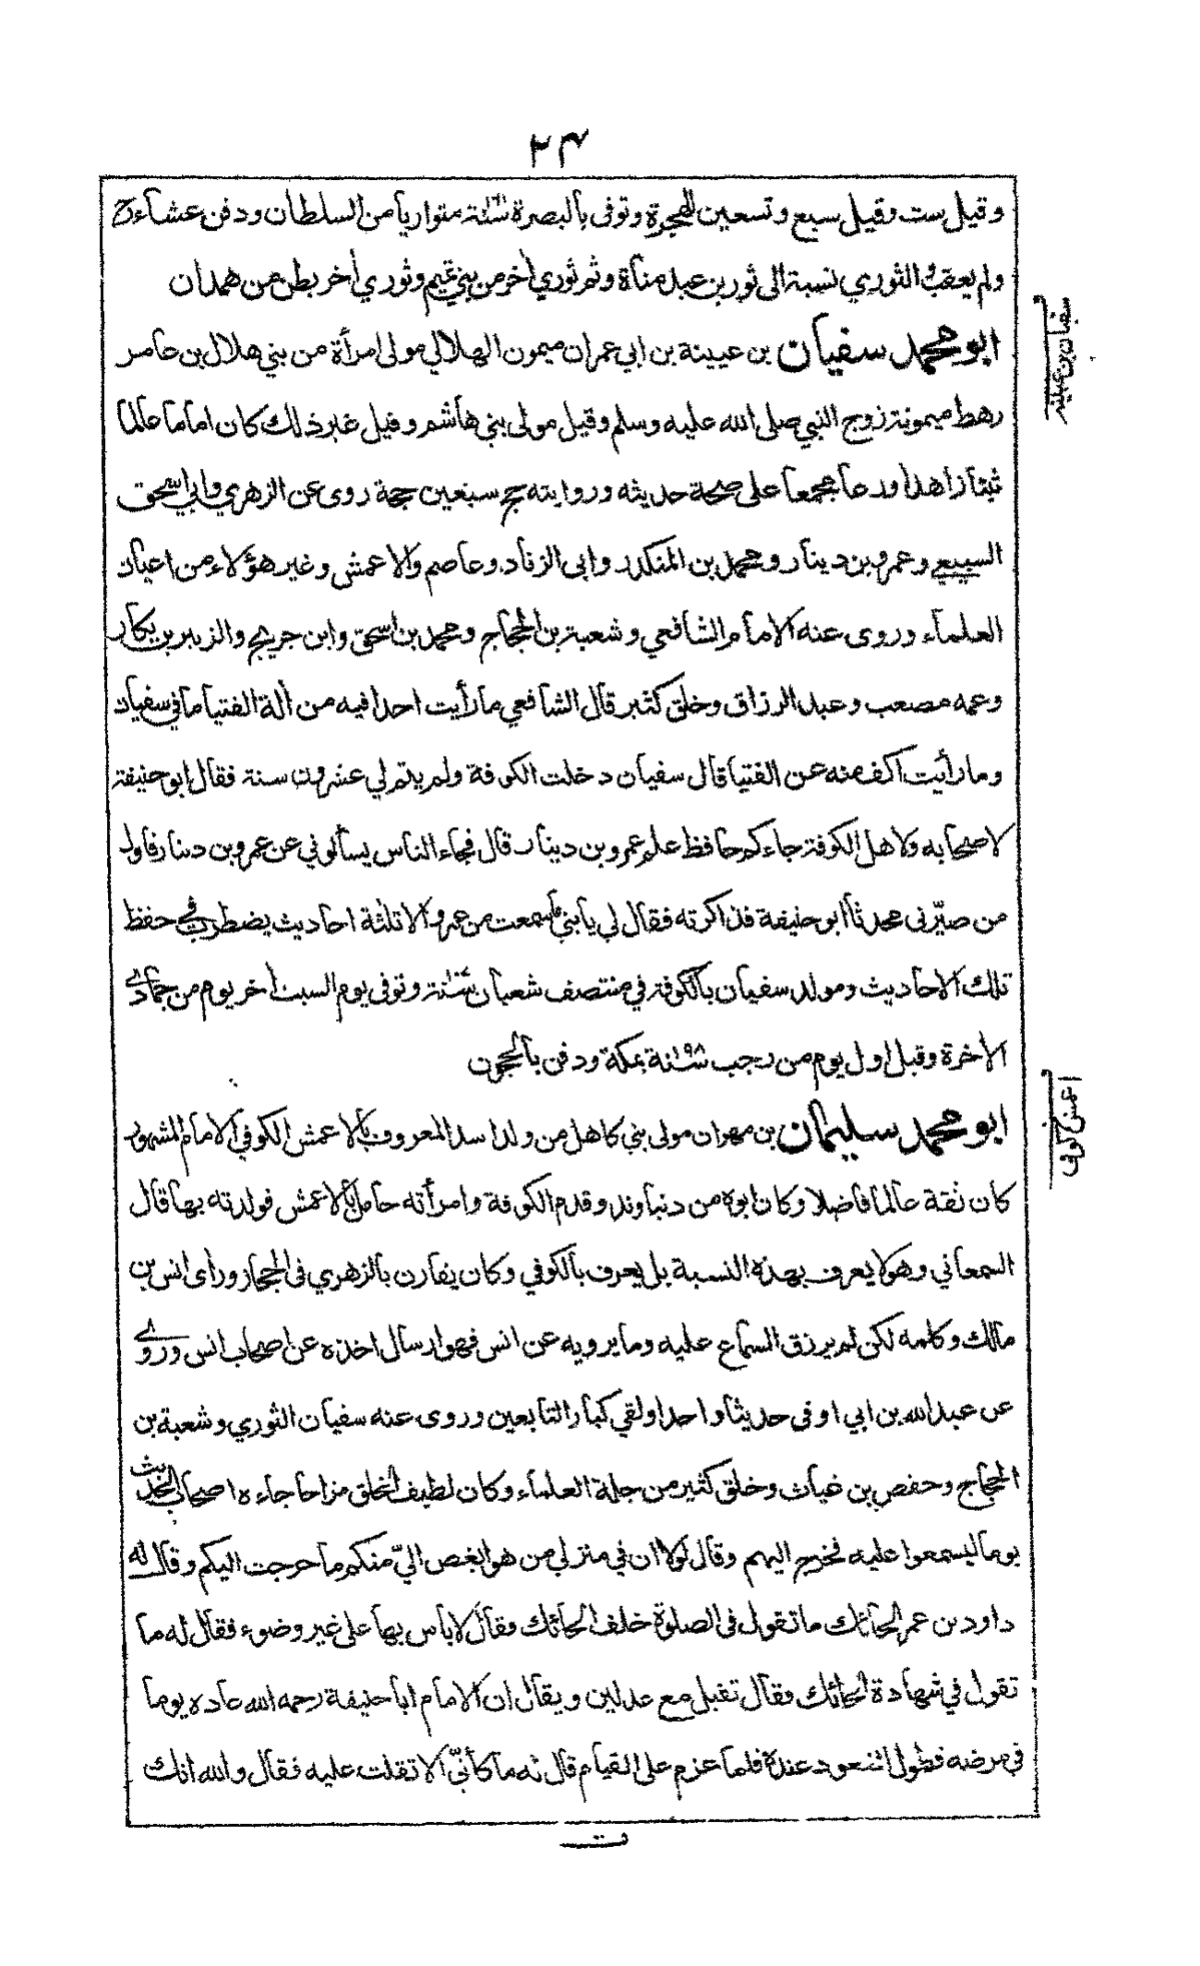 ٢٤
وقيل ست وقيل سبع وتسعين للهجرة وتوفى بالبصرة سنة متواريا من السلطان ودفن عشاء رح
ولم يعقب والثوري نسبة الى ثور بن عبد مناة وثم ثوري أخر من بني تميم وثوري أخر بطن من همدان
ابو محمد سفيان بن عيينة بن ابي عمران ميمون الهلالي مولى امرأة من بني هلال بن عامر
رهط ميمونة زوج النبي صلى الله عليه وسلم وقيل مولى بني هاشم وقيل غير ذلك كان اماما عالما
ثبتا زاهدا ورعا مجمعا على صحة حديثه وروايته حج سبعين حجة روى عن الزهري وابي اسحق
السبيعي وعمرو بن دينار ومحمد بن المنكدر وابى الزناد وعاصم والاعمش وغير هؤلاء من اعيان
العلماء وروى عنه الامام الشافعي وشعبة بن الحجاج ومحمد بن اسحق وابن جريج والزبير بن بكار
وعمه مصعب وعبد الرزاق وخلق كثير قال الشافعي ما رأيت احدا فيه من ألة الفتيا ما في سفيان
وما رأيت اكف منه عن الفتيا قال سفيان دخلت الكوفة ولم يتم لي عشرون سنة فقال ابو حنيفة
لاصحابه ولاهل الكوفة جاءكم حافظ علم عمرو بن دينار قال فجاء الناس يسألوني عن عمرو بن دينار فاول
من صيّرنى محدثا ابو حنيفة فذاكرته فقال لي يا بني ما سمعت من عمرو الا ثلثة احاديث يضطرب في حفظ
تلك الاحاديث ومولد سفيان بالكوفة في منتصف شعبان سنة وتوفى يوم السبت أخر يوم من جمادى
الأخرة وقيل اول يوم من رجب سنة ١٩٨ بمكة ودفن بالحجون
ابو محمد سليمان بن مهران مولى بني كاهل من ولد اسد المعروف بالاعمش الكوفي الامام المشهور
كان ثقة عالما فاضلا وكان ابوه من دنباوند وقدم الكوفة وامرأته حامل بالاعمش فولدته بها قال
السمعاني وهو لا يعرف بهذه النسبة بل يعرف بالكوفي وكان يقارن بالزهري في الحجاز وراى انس بن
مالك وكلمه لكن لم يرزق السماع عليه وما يرويه عن انس فهو ارسال اخذه عن اصحاب انس وروى
عن عبد الله بن ابي اوفى حديثا واحدا ولقي كبار التابعين وروى عنه سفيان الثوري وشعبة بن
الحجاج وحفص بن غياث وخلق كثير من جلة العلماء وكان لطيف الخلق مزاحا جاءه اصحاب الحديث
يوما ليسمعوا عليه فخرج اليهم وقال لولا ان في منزلي من هو ابغض اليّ منكم ما خرجت اليكم وقال له
داود بن عمر الحائك ما تقول في الصلوة خلف الحائك فقال لا بأس بها على غير وضوء فقال له ما
تقول في شهادة الحائك فقال تقبل مع عدلين ويقال ان الامام ابا حنيفة رحمه الله عاده يوما
في مرضه فطول القعود عنده فلما عزم على القيام قال له ما كأنّي الا ثقلت عليه فقال والله انك
سفيان بن عيينة
اعمش كوفى